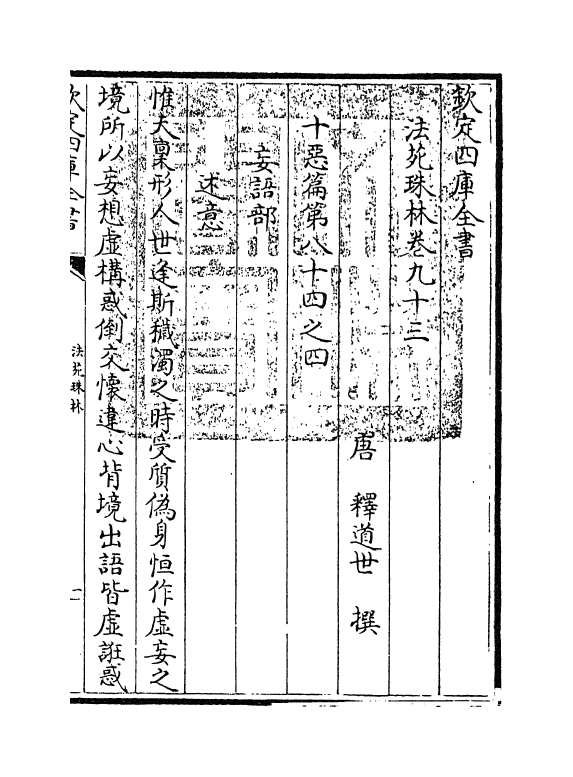 欽定四庫全書
法苑珠林卷九十三
唐 釋道世 撰
十惡篇第八十四之四
妄語部
述意
惟夫稟形人世逢斯穢濁之時受質偽身恒作虛妄之
境所以妄想虛構惑倒交懷違心背境出語皆虛誑惑
欽定四庫全書
法苑珠林
一